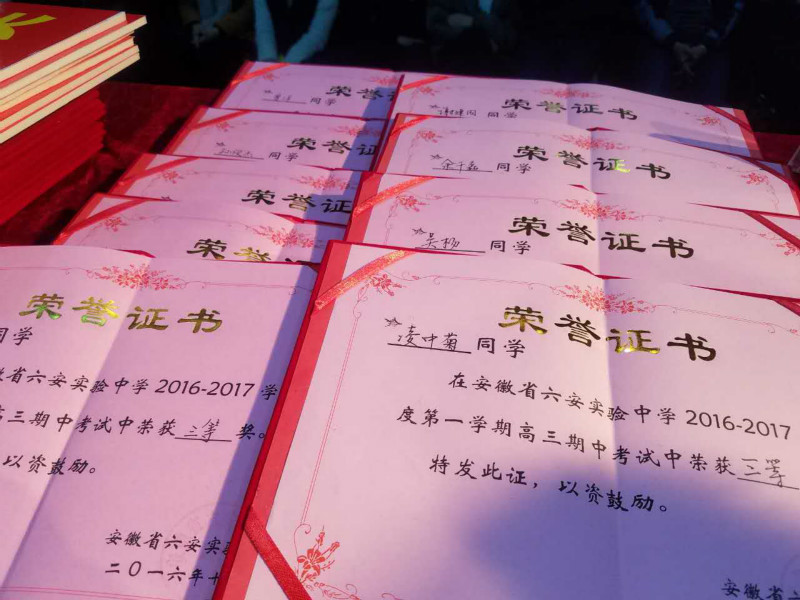 荣誉证书
同学
荣誉证书
同学
荣誉证书
同学
荣誉证书
余千鑫 同学
荣誉证书
荣誉证书
吴杨 同学
荣誉证书
荣誉证书
同学
徽省六安实验中学2016-2017学
高三期中考试中荣获 三等 奖。
以资鼓励。
安徽省六安实
二〇一六年十
荣誉证书
凌中菊 同学
在安徽省六安实验中学2016-2017
度第一学期高三期中考试中荣获 三等
特发此证，以资鼓励。
安徽省六安